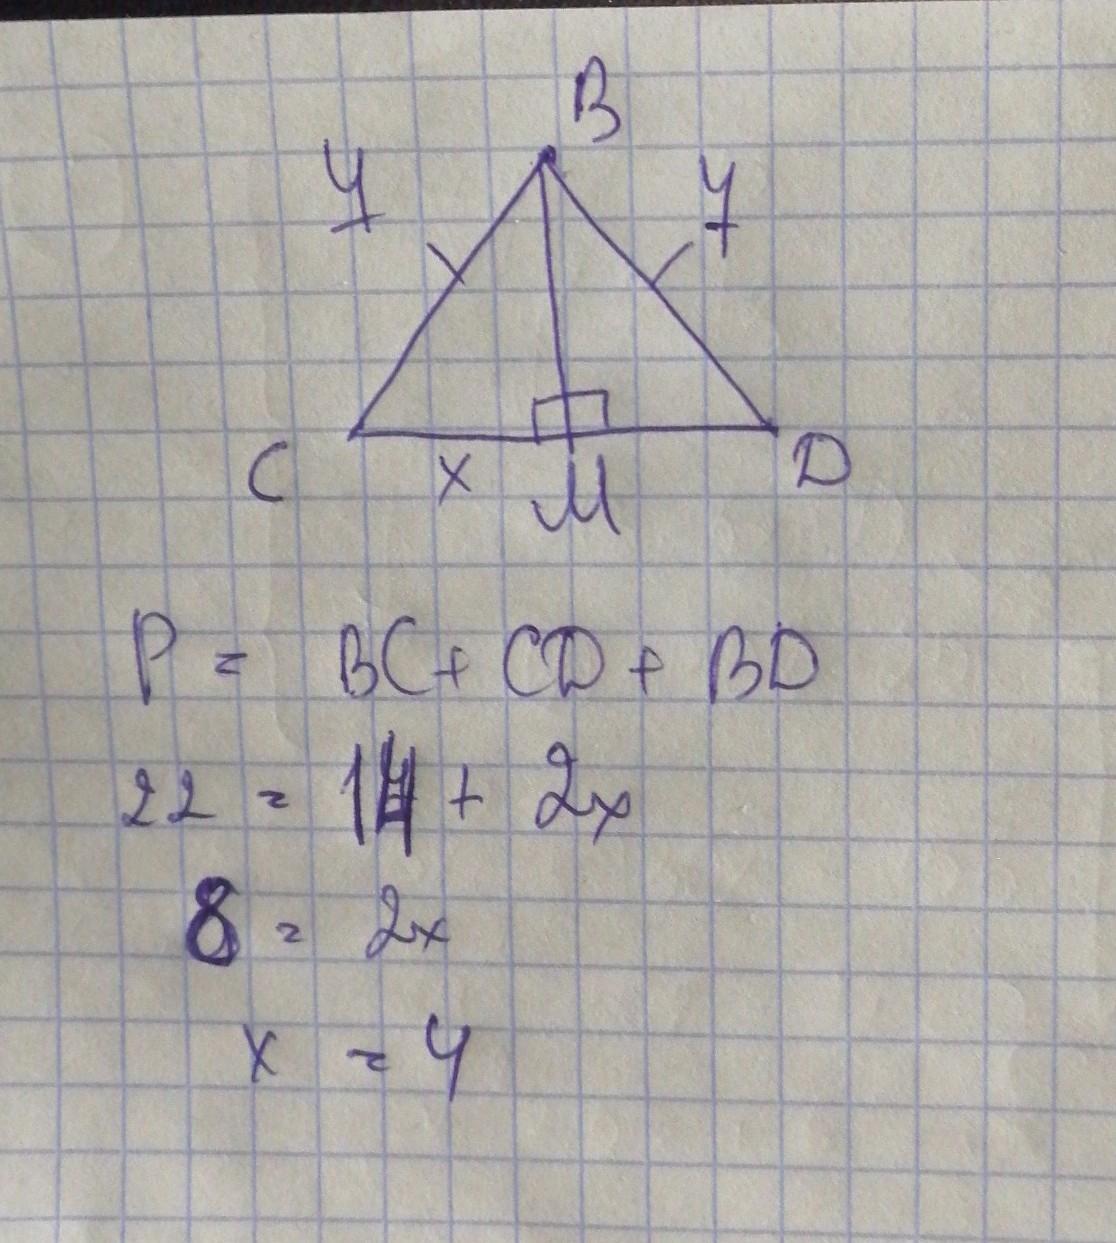 B
7 7
C x M D
P = BC + CD + BD
22 = 14 + 2x
8 = 2x
x = 4